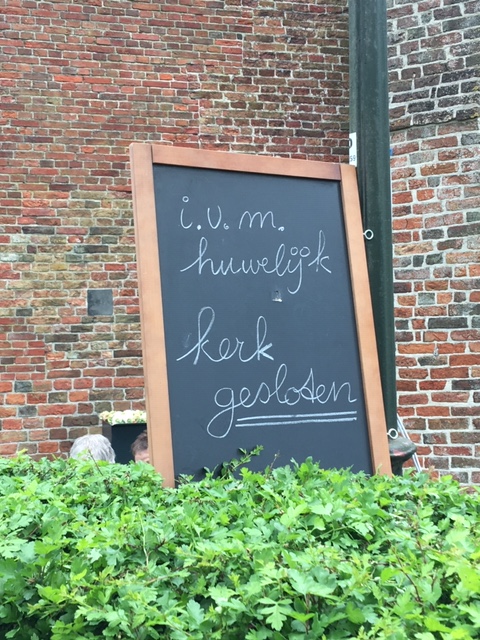 i.v.m.
huwelijk
kerk
gesloten